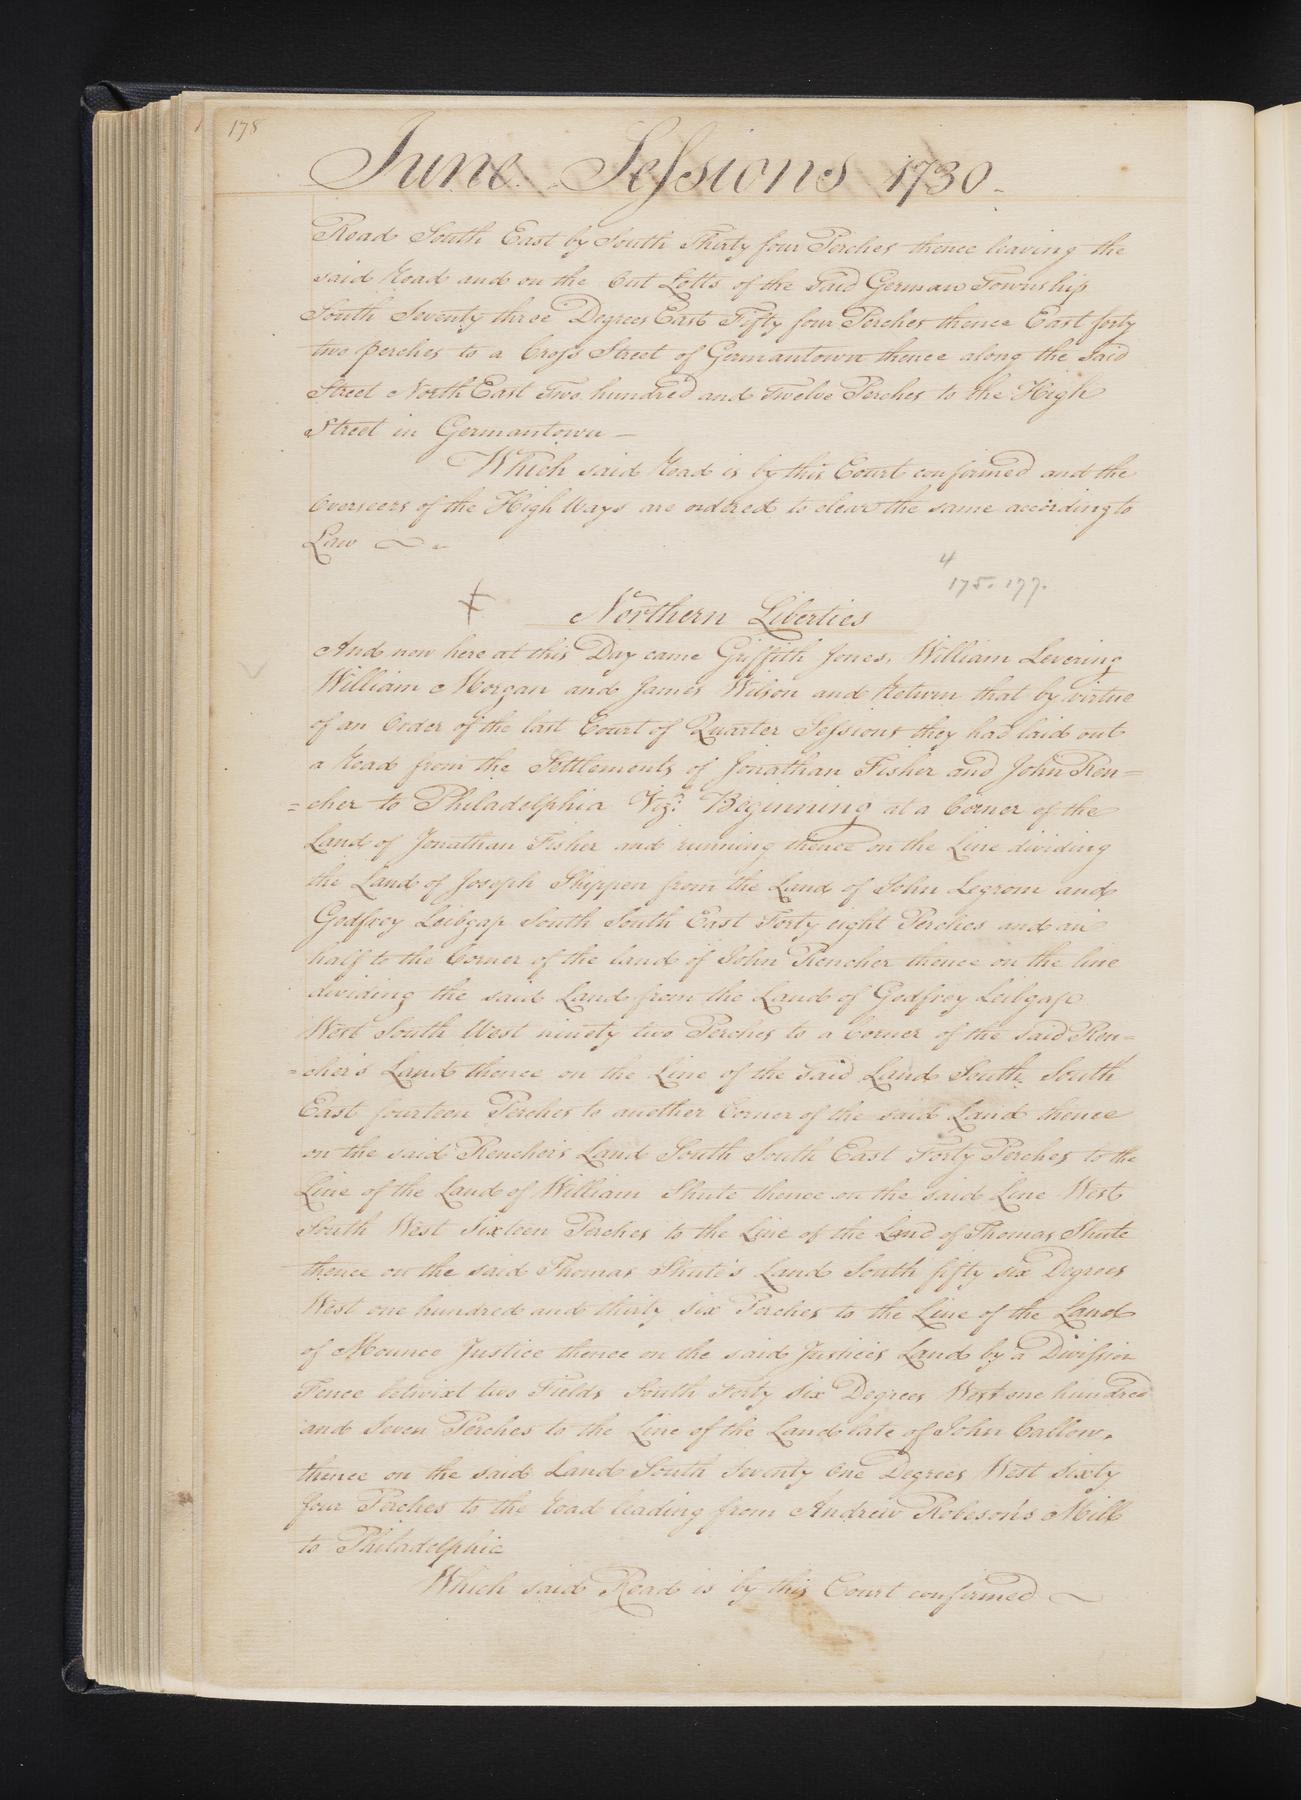 178
June Sessions 1730.
Road South East by South Thirty four Perches thence leaving the
said Road and on the Out Lotts of the said German Township
South Seventy three Degrees East Fifty four Perches thence East forty
two perches to a Cross Street of Germantown thence along the said
Street North East Two hundred and Twelve Perches to the High
Street in Germantown —
Which said Road is by this Court confirmed and the
Overseers of the High Ways are ordered to clear the same according to
Law
4
175. 177.
Northern Liberties
And now here at this Day came Griffith Jones, William Levering
William Morgan and James Wilson and Return that by virtue
of an Order of the last Court of Quarter Sessions they had laid out
a Road from the Settlements of Jonathan Fisher and John Ren=
=cher to Philadelphia Vizt: Beginning at a Corner of the
Land of Jonathan Fisher and running thence on the Line dividing
the Land of Joseph Shippen from the Land of John Legrom and
Godfrey Leibgap South South East Forty eight Perches and an
half to the Corner of the land of John Rencher thence on the line
dividing the said Land from the Land of Godfrey Leibgap
West South West ninety two Perches to a Corner of the said Ren=
=cher's Land thence on the Line of the said Land South South
East fourteen Perches to another Corner of the said Land thence
on the said Rencher's Land South South East Forty Perches to the
Line of the Land of William Shute thence on the said Line West
South West Sixteen Perches to the Line of the Land of Thomas Shute
thence on the said Thomas Shute's Land South fifty six Degrees
West one hundred and thirty six Perches to the Line of the Land
of Mounce Justice thence on the said Justices Land by a Division
Fence betwixt two Fields South Forty six Degrees West one hundred
and Seven Perches to the Line of the Land late of John Callow,
thence on the said Land South Seventy One Degrees West Sixty
four Perches to the Road leading from Andrew Robeson's Mill
to Philadelphia
Which said Road is by this Court confirmed